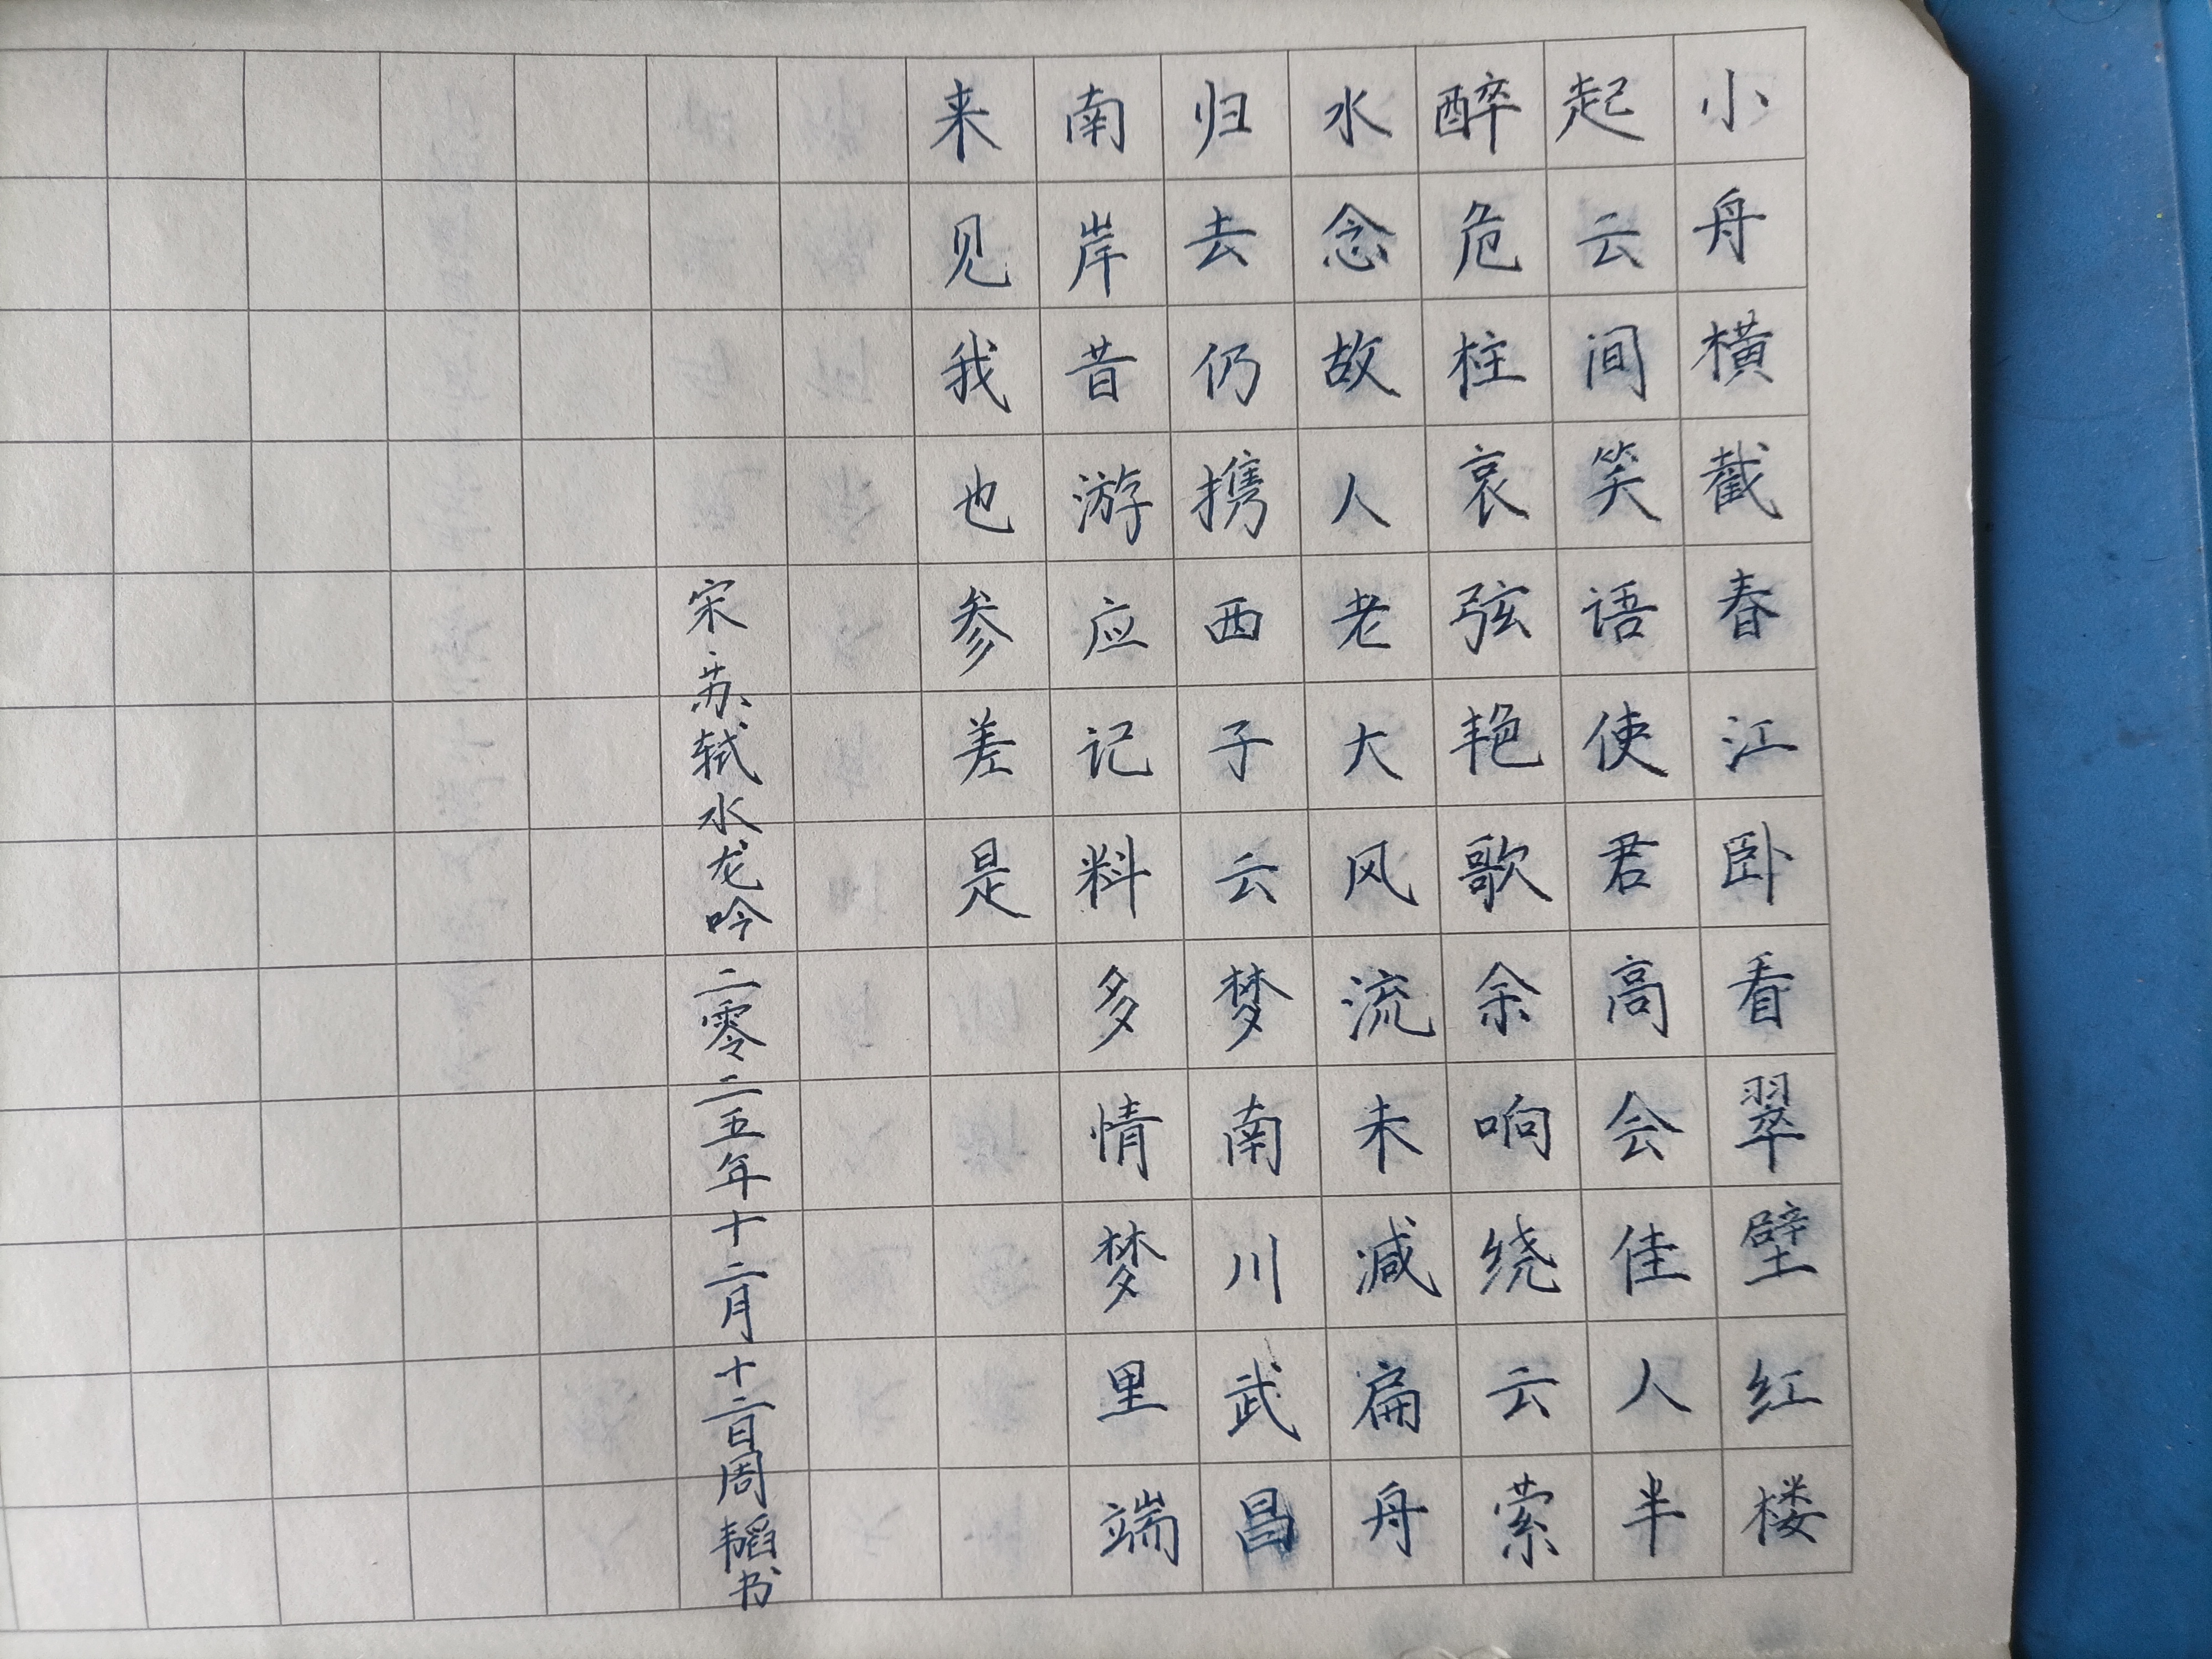 小舟横截春江卧看翠壁红楼
起云间笑语使君高会佳人半
醉危柱哀弦艳歌余响绕云萦
水念故人老大风流未减扁舟
归去仍携西子云梦南川武昌
南岸昔游应记料多情梦里端
来见我也参差是
宋苏轼水龙吟二零二五年十二月十二日周韬书